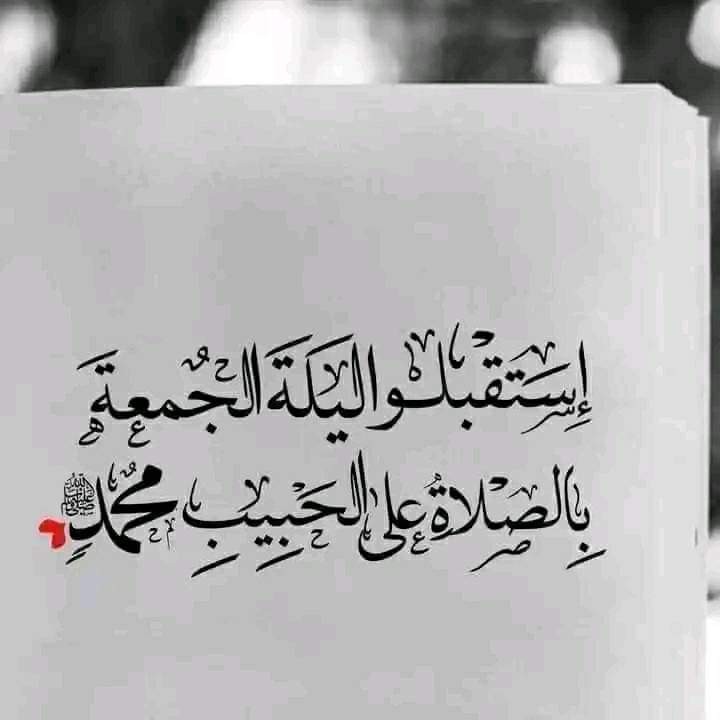 إِستَقبلوا ليلَةَ الجُمعةَ
بِالصلاةُ على الحَبِيبِ محمُدٍ ﷺ